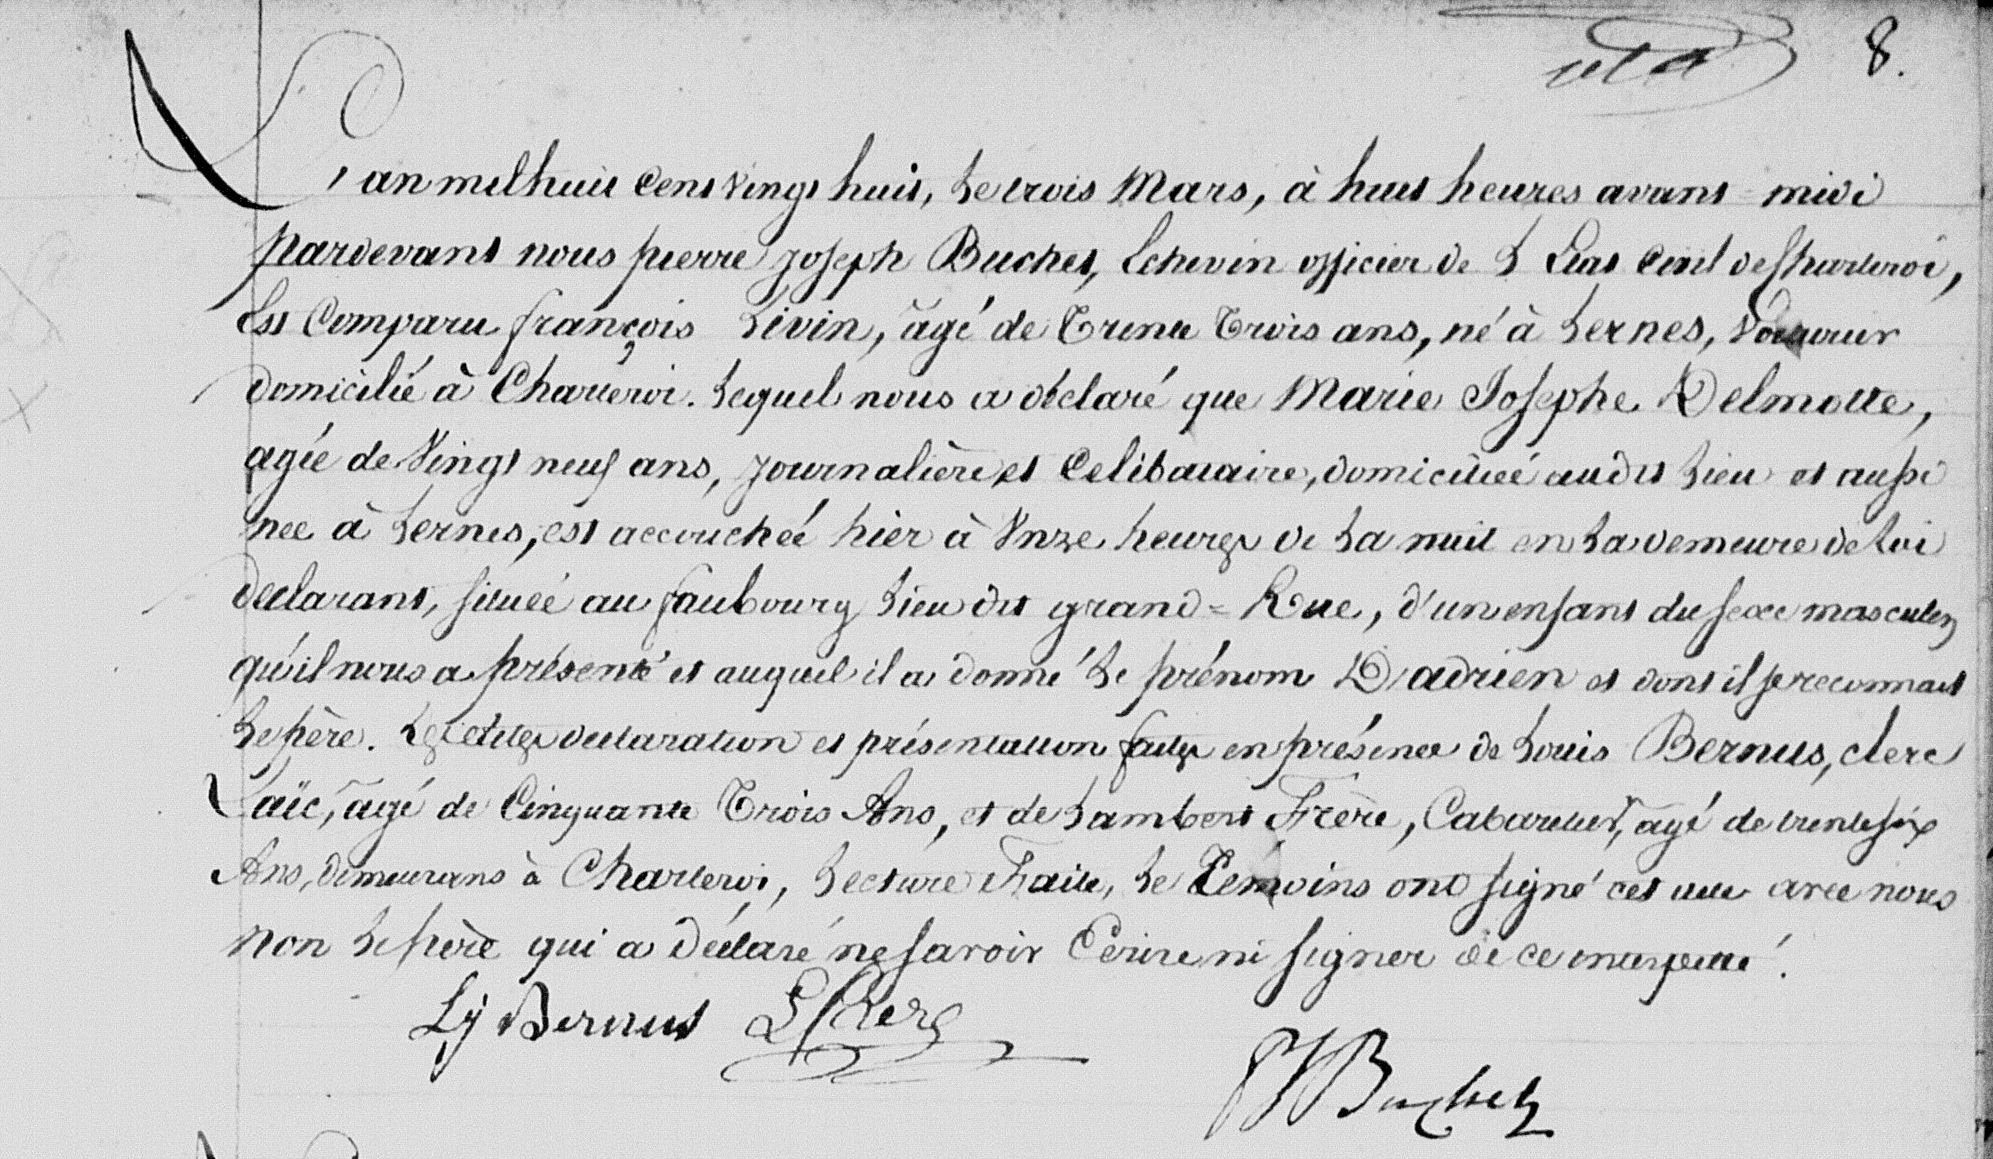 8.
L'an mil huit cent vingt huit, le trois Mars, à huit heures avant-midi
pardevant nous pierre joseph Buchet, Echevin officier de l'Etat Civil de Charleroi,
Est Comparu françois Livin, âgé de Trente Trois ans, né à Lernes,
domicilié à Charleroi. Lequel nous a déclaré que Marie Josephe Delmotte,
agée de Vingt neuf ans, journalière et Celibataire, domiciliée audit Lieu et aussi
née à Lernes, est accouchée hier à Onze heures de La nuit en La demeure de Lui
declarant, située au faubourg Lieu dit grand=Rue, d'un enfant du sexe masculin
qu'il nous a présenté et auquel il a donné Le prénom D'adrien et dont il se reconnait
Le père. Lesdites declaration et présentation faites en présence de Louis Bernus, clerc
Laïc, âgé de Cinquante Trois Ans, et de Lambert Frère, Cabaretier, agé de trente six
Ans, demeurans à Charleroi, Lecture Faite, Le Témoins ont signé cet acte avec nous
non Le père qui a Déclaré ne savoir Ecrire ni signer de ce interpellé.
LJ Bernus LFrere
PJ Buchet